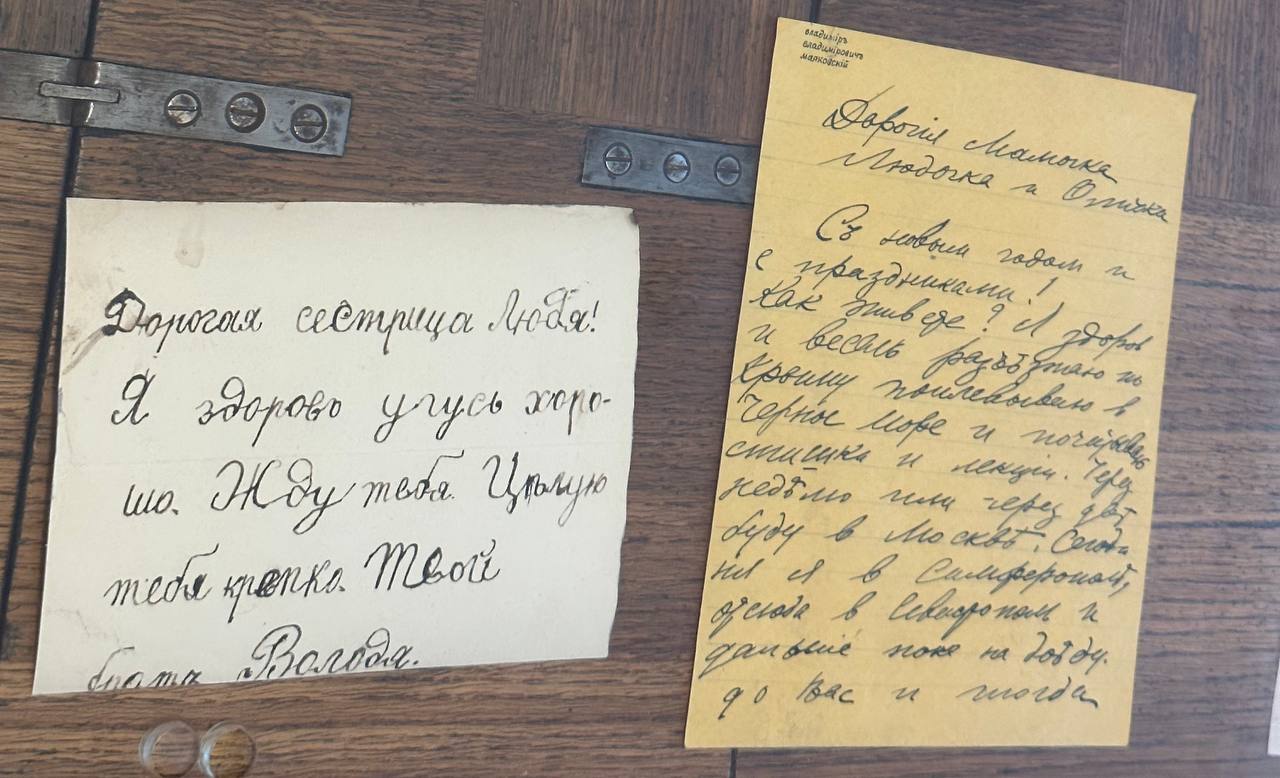 Дорогая сестрица Люба!
Я здорово учусь хоро-
шо. Жду тебя. Цѣлую
тебя крепко. Твой
братъ Володя.
владимiръ
владимiровичъ
маяковскiй
Дорогiя Мамочка
Людочка и Оличка
Съ новым годом и
с праздниками!
Как живете? Я здоров
и весел разъѣзжаю по
Крыму поплевываю в
Черное море и почитываю
стишки и лекцiи. Через
недѣлю или через двѣ
буду в Москвѣ. Сегод-
ня я в Симферополѣ,
отсюда в Севастополь и
дальше пока не доѣду.
до Вас и тогда